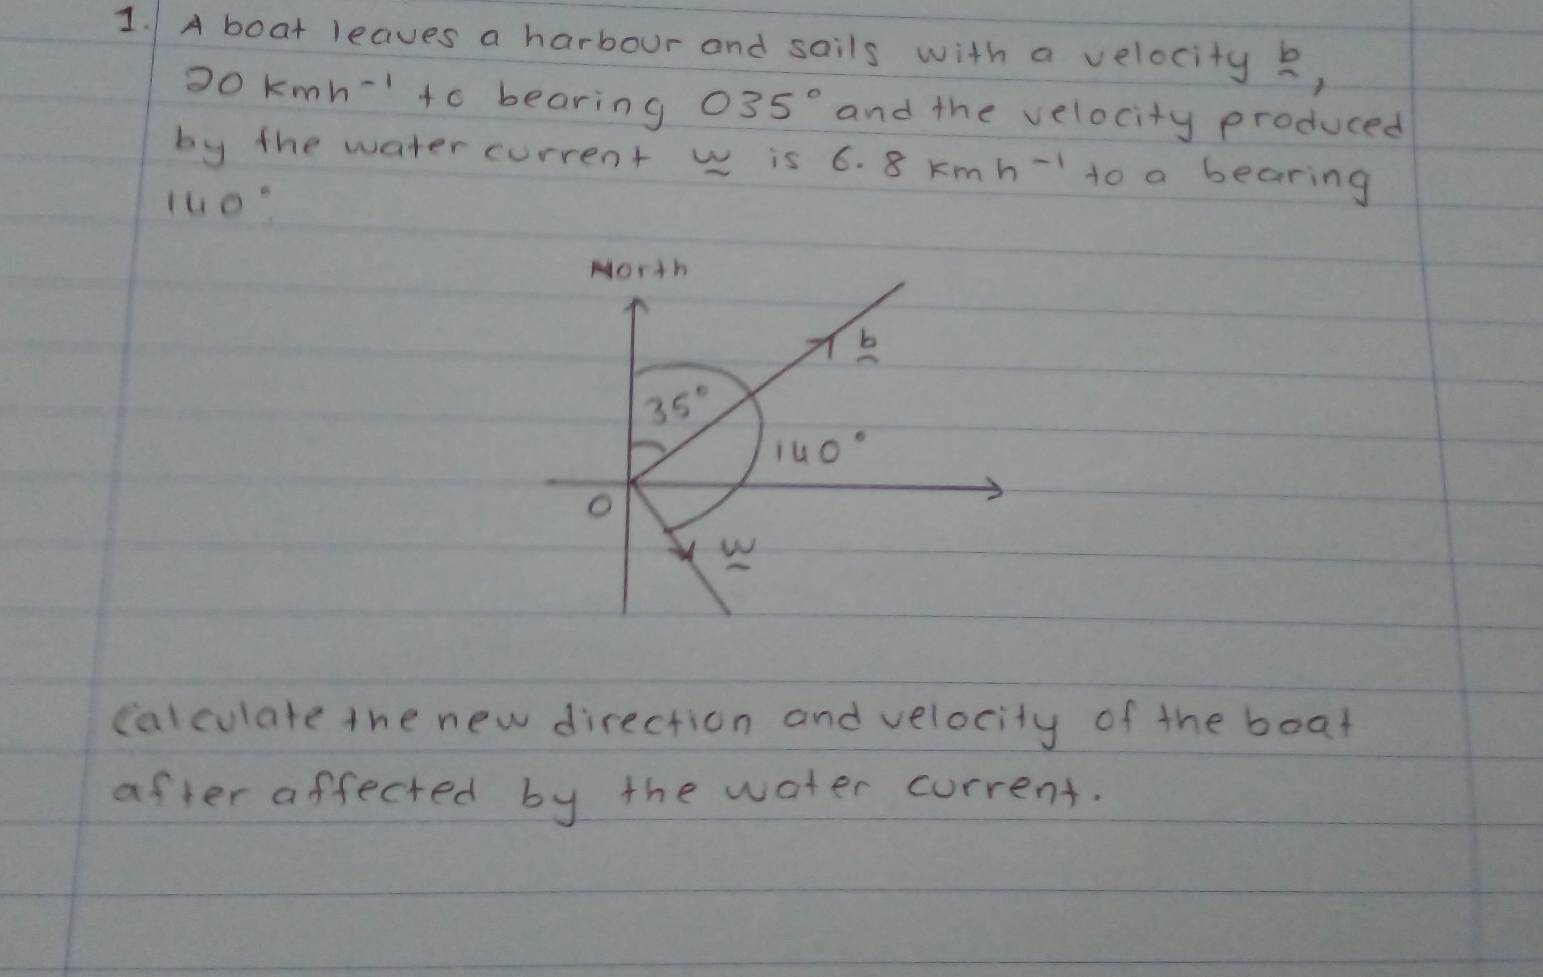 1. A boat leaves a harbour and sails with a velocity b,
20 kmh⁻¹ to bearing 035° and the velocity produced
by the water current w is 6.8 kmh⁻¹ to a bearing
140°.
North
b
35°
140°
O
w
calculate the new direction and velocity of the boat
after affected by the water current.